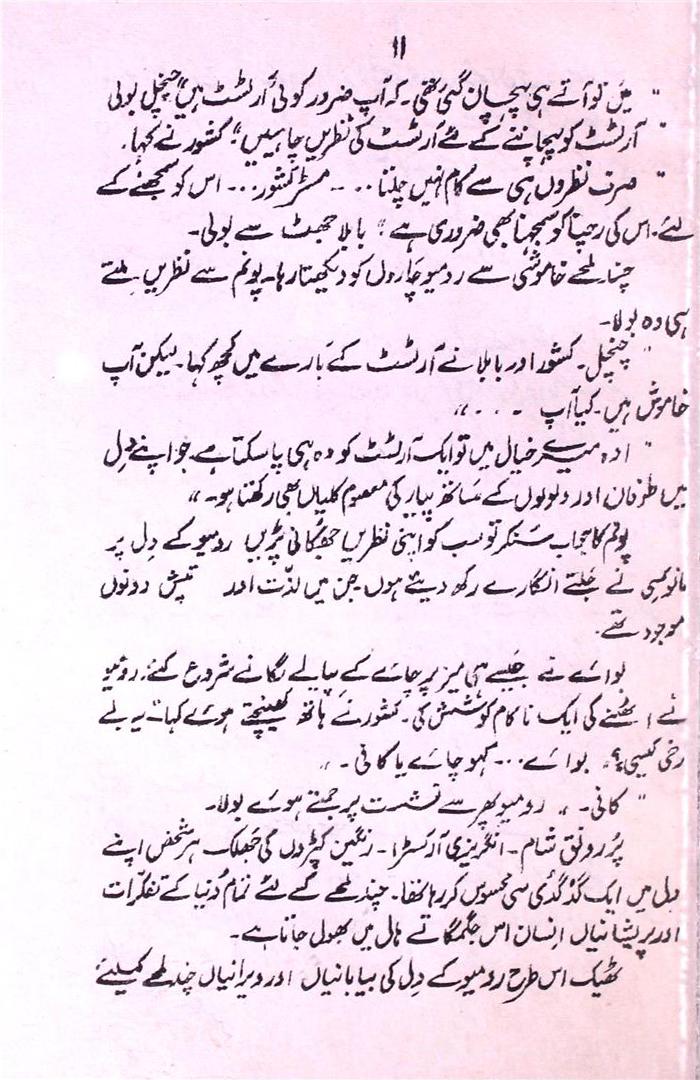 ۱۱
" میں تو آتے ہی پہچان گئی تھی۔ کہ آپ ضرور کوئی آرٹسٹ ہیں" چنچل بولی
" آرٹسٹ کو پہچاننے کے لئے آرٹسٹ کی نظریں چاہئیں" کشور نے کہا۔
" صرف نظروں ہی سے کام نہیں چلتا ... مسٹر کشور ... اس کو سمجھنے کے
لئے۔ اس کی رچنا کو سمجھنا بھی ضروری ہے" بابلا جھٹ سے بولی۔
چند لمحے خاموشی سے رومیو چاروں کو دیکھتا رہا۔ پونم سے نظریں ملتے
ہی وہ بولا۔
" چنچل۔ کشور اور بابلا نے آرٹسٹ کے بارے میں کچھ کہا۔ لیکن آپ
خاموش ہیں۔ کیا آپ ۔ ۔ ۔ ۔"
" اوہ میرے خیال میں تو ایک آرٹسٹ کو وہ ہی پا سکتا ہے جو اپنے دل
میں طوفان اور ولولوں کے ساتھ پیار کی معصوم کلیاں بھی رکھتا ہو۔"
پونم کا جواب سنکر تو سب کو اپنی نظریں جھکانی پڑیں رومیو کے دِل پر
مانو کسی نے جلتے انگارے رکھ دیئے ہوں جن میں لذّت اور تپش دونوں
موجود تھے۔
بوائے نے جیسے ہی میز پر چائے کے پیالے لگانے شروع کئے، رومیو
نے اٹھنے کی ایک ناکام کوشش کی۔ کشور نے ہاتھ کھینچتے ہوئے کہا۔ یہ بے
رخی کیسی؟ بوائے ... کہو چائے یا کافی۔"
" کافی۔" رومیو پھر سے نشست پر جمتے ہوئے بولا۔
پُر رونق شام۔ انگریزی آرکسٹرا۔ رنگین کپڑوں کی جھلک ہر شخص اپنے
دِل میں ایک گدگدی سی محسوس کر رہا تھا۔ چند لمحے کے لئے تمام دُنیا کے تفکّرات
اور پریشانیاں اِنسان اس جگمگاتے ہال میں بھول جاتا ہے۔
ٹھیک اس طرح رومیو کے دِل کی بیابانیاں اور ویرانیاں چند لمحے کیلئے